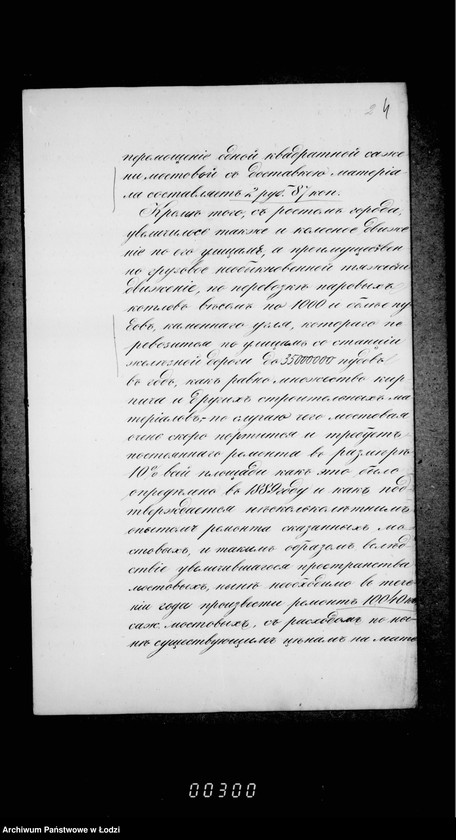 2 4
перемощеніе одной квадратной саже
ни мостовой съ доставкою матеріа
ла составляетъ 2 руб. 87 коп.
Кромѣ того, съ ростомъ города,
увеличилось также и колесное движе
ніе по его улицамъ, а преимуществен
но грузовое необыкновенной тяжести
движеніе, по перевозкѣ паровыхъ
котловъ вѣсомъ по 1000 и болѣе пу
довъ, каменнаго угля, котораго пе
ревозится по улицамъ со станціи
желѣзной дороги до 35000000 пудовъ
въ годъ, какъ равно множество кир
пича и другихъ строительныхъ ма
теріаловъ, по случаю чего мостовая
очень скоро портится и требуетъ
постояннаго ремонта въ размѣрѣ
10% всей площади какъ это было
опредѣлено въ 1889 году и какъ под
тверждается нѣскольколѣтнимъ
опытомъ ремонта сказанныхъ мо
стовыхъ, и такимъ образомъ вслѣд
ствіе увеличившагося пространства
мостовыхъ, нынѣ необходимо въ тече
ніи года произвести ремонтъ 10040
саж. мостовыхъ, съ расходомъ по ны
нѣ существующимъ цѣнамъ на мате
00300
Archiwum Państwowe w Łodzi